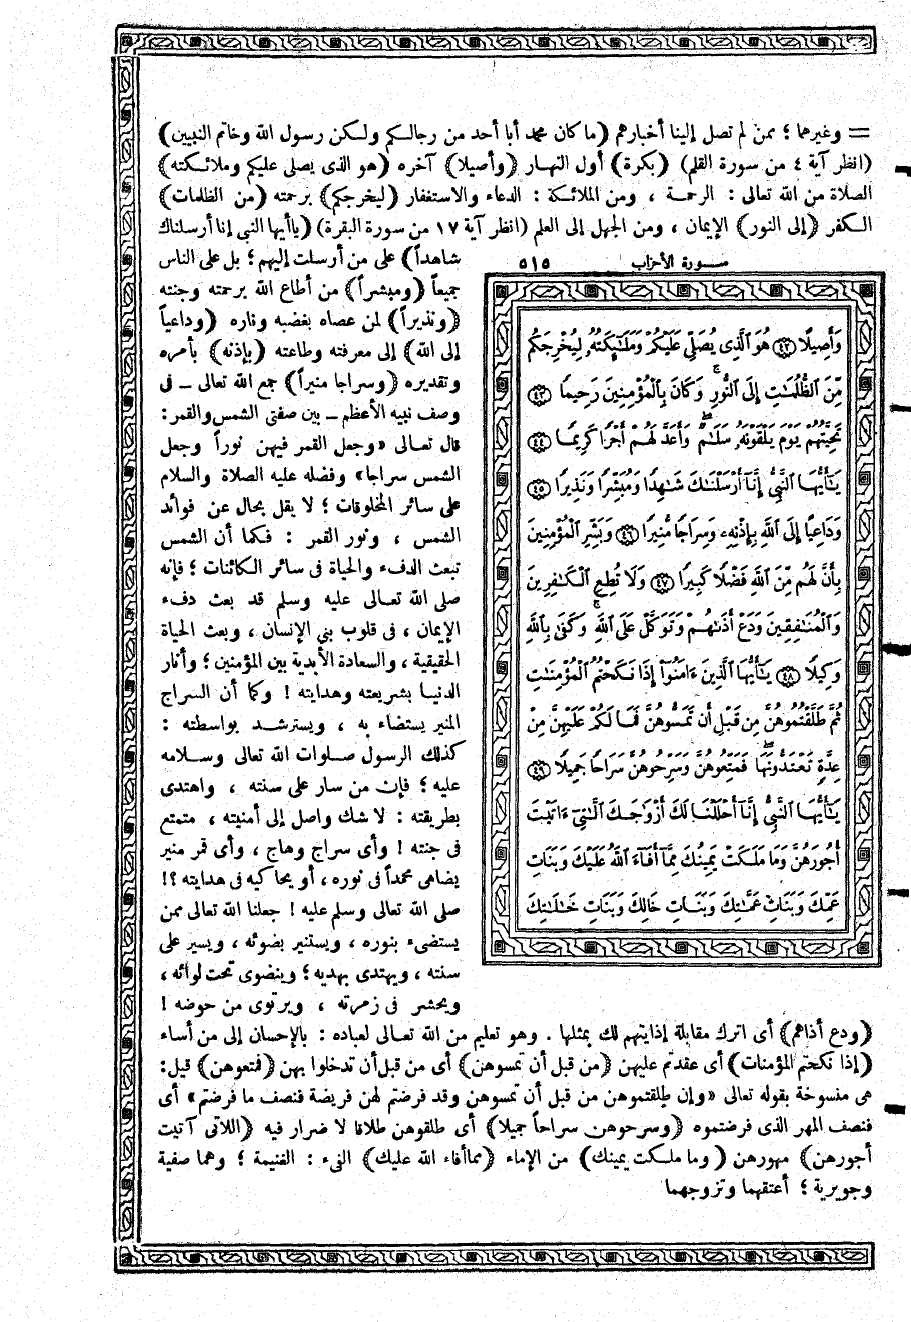 = وغيرهما ؛ ممن لم تصل إلينا أخبارهم (ما كان محمد أبا أحد من رجالكم ولكن رسول الله وخاتم النبيين)
(انظر آية ٤ من سورة القلم) (بكرة) أول النهار (وأصيلا) آخره (هو الذى يصلى عليكم وملائكته)
الصلاة من الله تعالى : الرحمة ، ومن الملائكة : الدعاء والاستغفار (ليخرجكم) برحمته (من الظلمات)
الكفر (إلى النور) الإيمان ، ومن الجهل إلى العلم (انظر آية ١٧ من سورة البقرة) (يا أيها النبى إنا أرسلناك
شاهداً) على من أرسلت إليهم ؛ بل على الناس
جميعاً (ومبشراً) من أطاع الله برحمته وجنته
(ونذيراً) لمن عصاه بغضبه وناره (وداعياً
إلى الله) إلى معرفته وطاعته (بإذنه) بأمره
وتقديره (وسراجا منيراً) جمع الله تعالى ــ فى
وصف نبيه الأعظم ــ بين صفتى الشمس والقمر :
قال تعالى «وجعل القمر فيهن نوراً وجعل
الشمس سراجا» وفضله عليه الصلاة والسلام
على سائر المخلوقات ؛ لا يقل بحال عن فوائد
الشمس ، ونور القمر : فكما أن الشمس
تبعث الدفء والحياة فى سائر الكائنات ؛ فإنه
صلى الله تعالى عليه وسلم قد بعث دفء
الإيمان ، فى قلوب بنى الإنسان ، وبعث الحياة
الحقيقية ، والسعادة الأبدية بين المؤمنين ؛ وأنار
الدنيا بشريعته وهدايته ! وكما أن السراج
المنير يستضاء به ، ويسترشد بواسطته :
كذلك الرسول صلوات الله تعالى وسلامه
عليه ؛ فإن من سار على سنته ، واهتدى
بطريقته : لا شك واصل إلى أمنيته ، متمتع
فى جنته ! وأى سراج وهاج ، وأى قمر منير
يضاهى محمداً فى نوره ، أو يحاكيه فى هدايته ؟!
صلى الله تعالى وسلم عليه ! جعلنا الله تعالى ممن
يستضىء بنوره ، ويستنير بضوئه ، ويسير على
سنته ، ويهتدى بهديه ؛ وينضوى تحت لوائه ،
ويحشر فى زمرته ، ويرتوى من حوضه !
سورة الأحزاب ٥١٥
وَأَصِيلًا ﴿٤٢﴾ هُوَ الَّذِى يُصَلِّى عَلَيْكُمْ وَمَلَٰٓئِكَتُهُۥ لِيُخْرِجَكُم
مِّنَ الظُّلُمَٰتِ إِلَى النُّورِ ۚ وَكَانَ بِالْمُؤْمِنِينَ رَحِيمًا ﴿٤٣﴾
تَحِيَّتُهُمْ يَوْمَ يَلْقَوْنَهُۥ سَلَٰمٌ ۖ وَأَعَدَّ لَهُمْ أَجْرًا كَرِيمًا ﴿٤٤﴾
يَٰٓأَيُّهَا النَّبِىُّ إِنَّآ أَرْسَلْنَٰكَ شَٰهِدًا وَمُبَشِّرًا وَنَذِيرًا ﴿٤٥﴾
وَدَاعِيًا إِلَى اللَّهِ بِإِذْنِهِۦ وَسِرَاجًا مُّنِيرًا ﴿٤٦﴾ وَبَشِّرِ الْمُؤْمِنِينَ
بِأَنَّ لَهُم مِّنَ اللَّهِ فَضْلًا كَبِيرًا ﴿٤٧﴾ وَلَا تُطِعِ الْكَٰفِرِينَ
وَالْمُنَٰفِقِينَ وَدَعْ أَذَىٰهُمْ وَتَوَكَّلْ عَلَى اللَّهِ ۚ وَكَفَىٰ بِاللَّهِ
وَكِيلًا ﴿٤٨﴾ يَٰٓأَيُّهَا الَّذِينَ ءَامَنُوٓا إِذَا نَكَحْتُمُ الْمُؤْمِنَٰتِ
ثُمَّ طَلَّقْتُمُوهُنَّ مِن قَبْلِ أَن تَمَسُّوهُنَّ فَمَا لَكُمْ عَلَيْهِنَّ مِنْ
عِدَّةٍ تَعْتَدُّونَهَا ۖ فَمَتِّعُوهُنَّ وَسَرِّحُوهُنَّ سَرَاحًا جَمِيلًا ﴿٤٩﴾
يَٰٓأَيُّهَا النَّبِىُّ إِنَّآ أَحْلَلْنَا لَكَ أَزْوَٰجَكَ الَّٰتِىٓ ءَاتَيْتَ
أُجُورَهُنَّ وَمَا مَلَكَتْ يَمِينُكَ مِمَّآ أَفَآءَ اللَّهُ عَلَيْكَ وَبَنَاتِ
عَمِّكَ وَبَنَاتِ عَمَّٰتِكَ وَبَنَاتِ خَالِكَ وَبَنَاتِ خَٰلَٰتِكَ
(ودع أذاهم) أى اترك مقابلة إذايتهم لك بمثلها . وهو تعليم من الله تعالى لعباده : بالإحسان إلى من أساء
(إذا نكحتم المؤمنات) أى عقدتم عليهن (من قبل أن تمسوهن) أى من قبل أن تدخلوا بهن (فمتعوهن) قيل :
هى منسوخة بقوله تعالى «وإن طلقتموهن من قبل أن تمسوهن وقد فرضتم لهن فريضة فنصف ما فرضتم» أى
فنصف المهر الذى فرضتموه (وسرحوهن سراحاً جميلا) أى طلقوهن طلاقا لا ضرار فيه (اللاتى آتيت
أجورهن) مهورهن (وما ملكت يمينك) من الإماء (مما أفاء الله عليك) الفىء : الغنيمة ؛ وهما صفية
وجويرية ؛ أعتقهما وتزوجهما